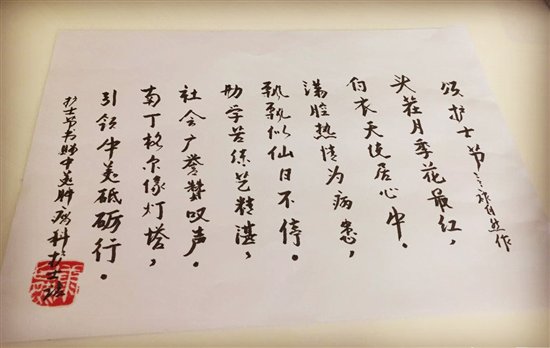 颂护士节
头茬月季花最红，
白衣天使居心中。
满腔热情为病患，
飘飘似仙日不停。
勤学苦练艺精湛，
社会广誉赞叹声。
南丁格尔像灯塔，
引领中美砥砺行。
护士节书赐中美肿瘤科护士站